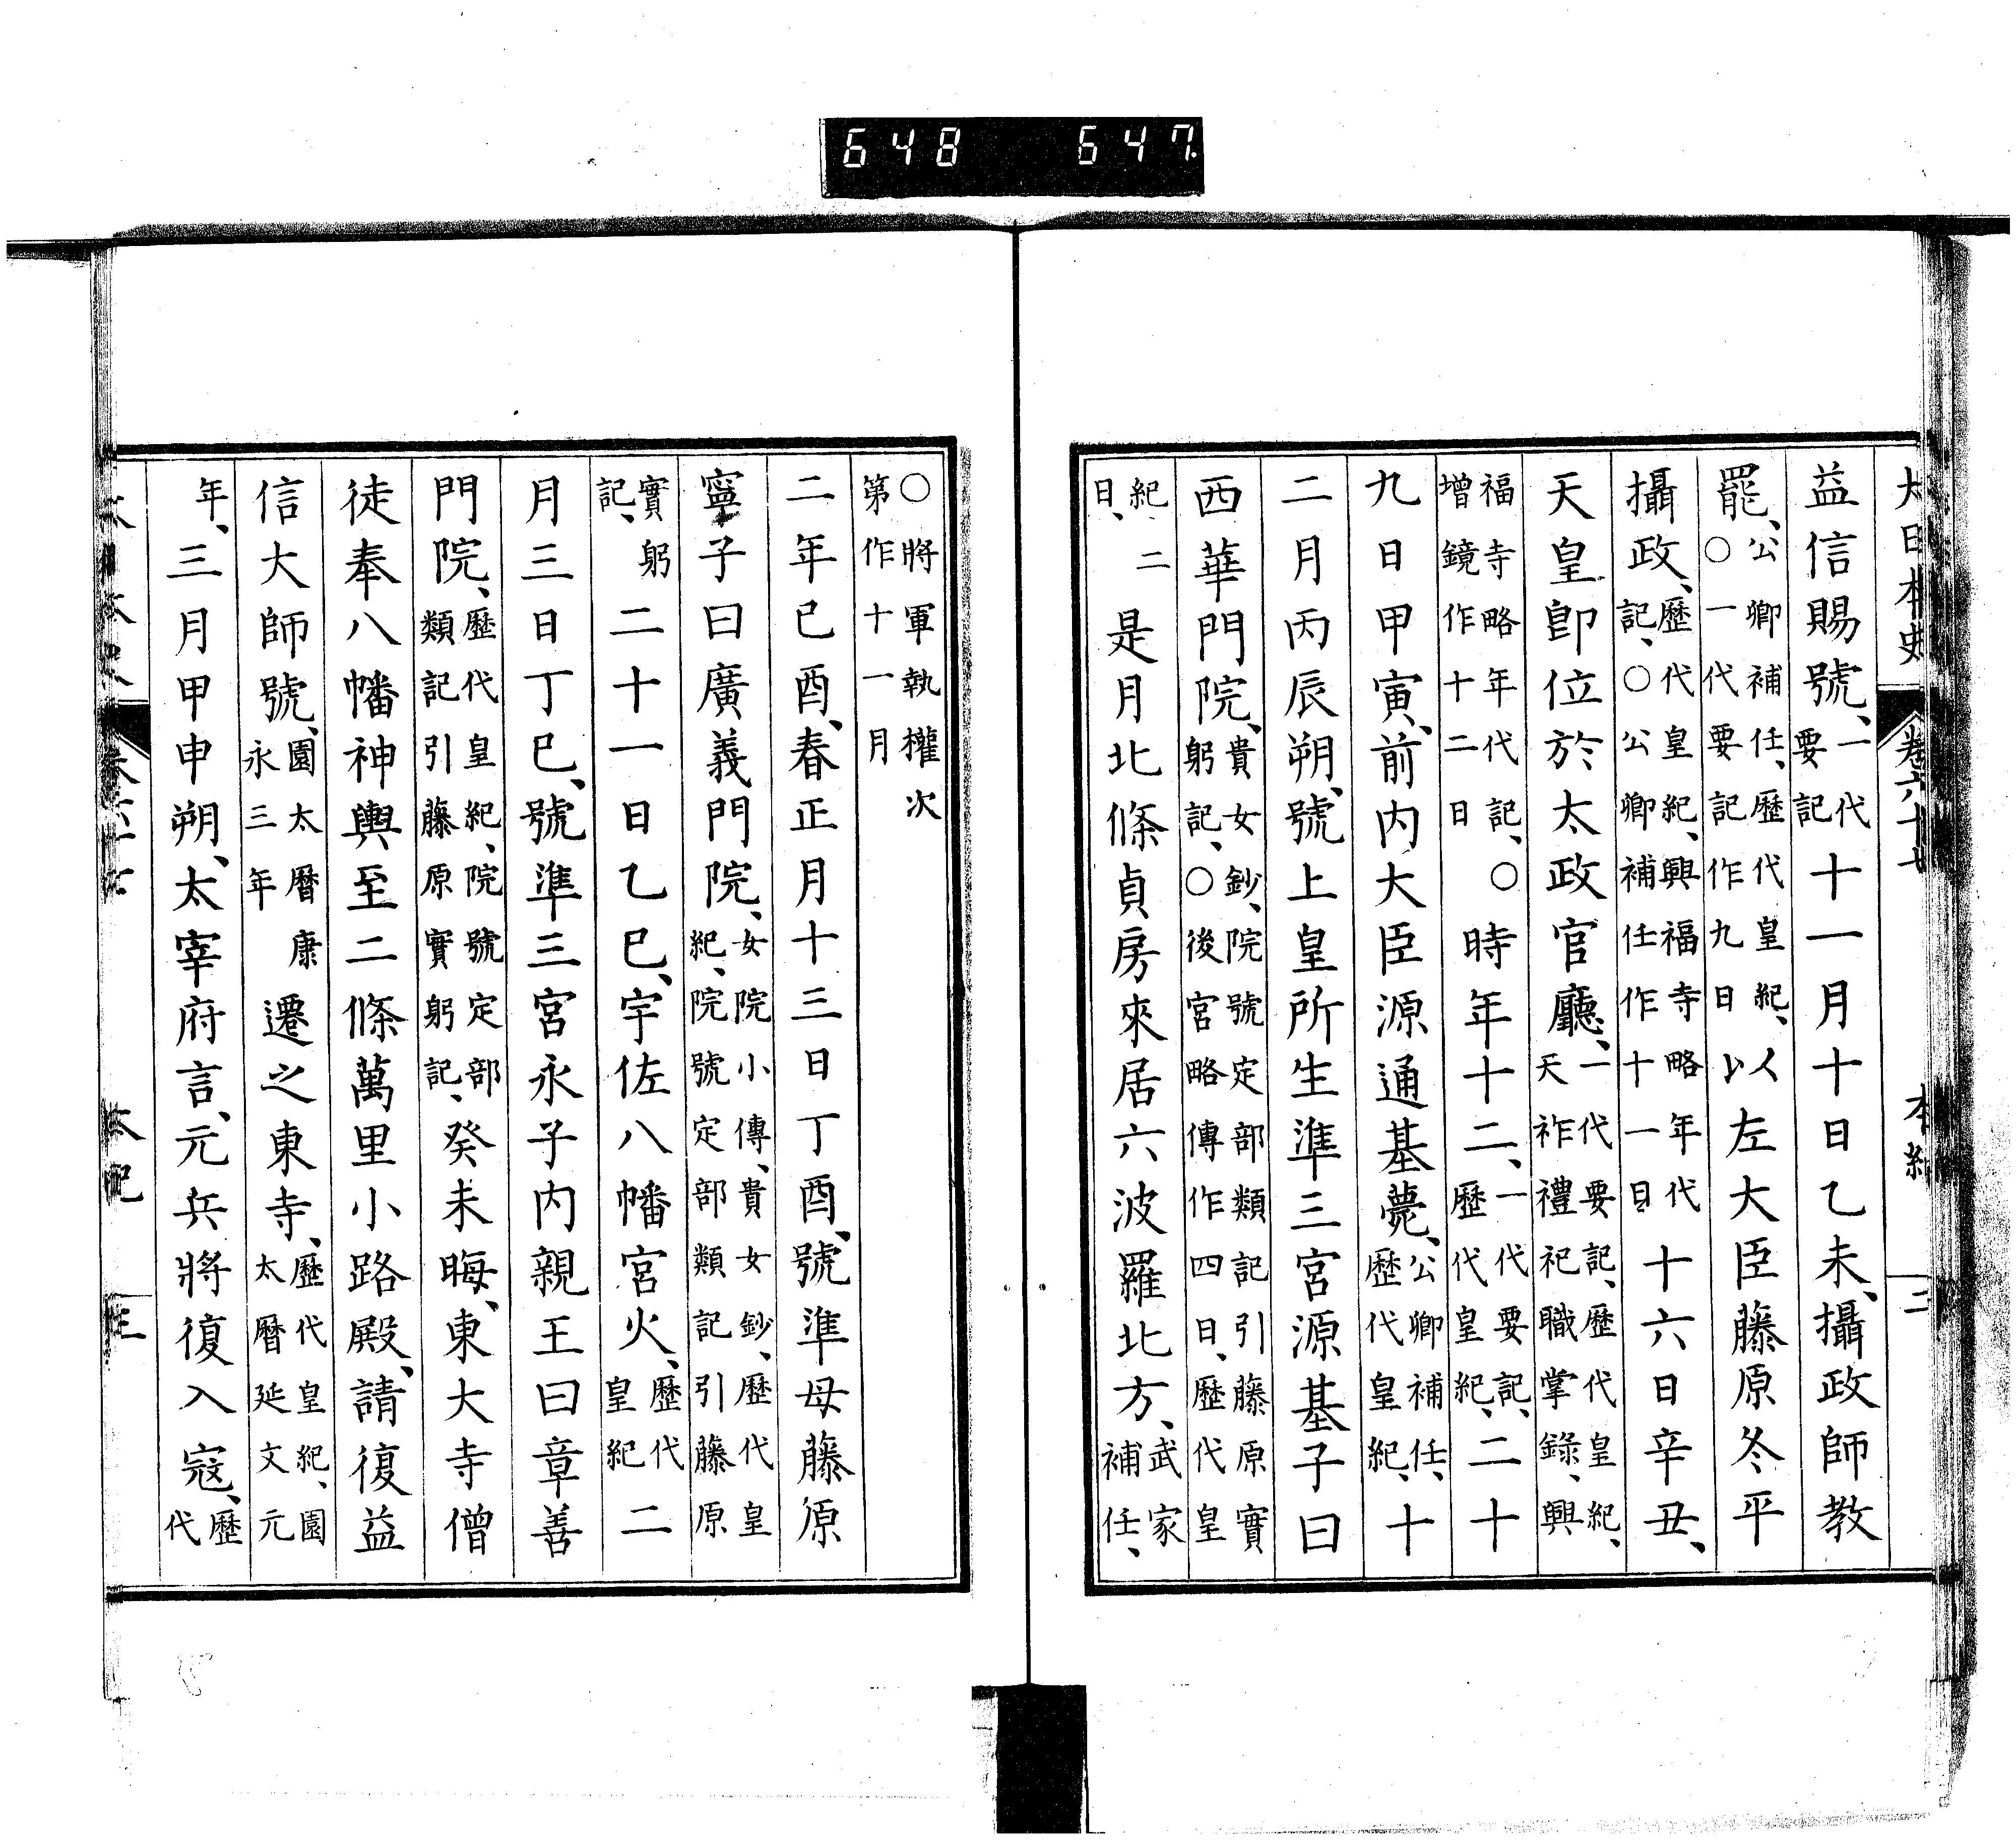 648 647
大日本史 卷六十七 本紀 二
益信賜號、一代要記十一月十日乙未、攝政師教
罷、公卿補任、歷代皇紀、○一代要記作九日以左大臣藤原冬平
攝政、歷代皇紀、興福寺略年代記、○公卿補任作十一日十六日辛丑、
天皇卽位於太政官廳、一代要記、歷代皇紀、天祚禮祀職掌錄、興
福寺略年代記、○增鏡作十二日時年十二、一代要記、歷代皇紀、二十
九日甲寅、前內大臣源通基薨、公卿補任、歷代皇紀、十
二月丙辰朔、號上皇所生準三宮源基子曰
西華門院、貴女鈔、院號定部類記引藤原實躬記、○後宮略傳作四日、歷代皇
紀二日、是月北條貞房來居六波羅北方、武家補任、
○將軍執權次第作十一月
二年己酉、春正月十三日丁酉、號準母藤原
寧子曰廣義門院、女院小傳、貴女鈔、歷代皇紀、院號定部類記引藤原
實躬記、二十一日乙巳、宇佐八幡宮火、歷代皇紀二
月三日丁巳、號準三宮永子內親王曰章善
門院、歷代皇紀、院號定部類記引藤原實躬記、癸未晦、東大寺僧
徒奉八幡神輿至二條萬里小路殿、請復益
信大師號、園太曆康永三年遷之東寺、歷代皇紀、園太曆延文元
年、三月甲申朔、太宰府言、元兵將復入寇、歷代
本紀 三